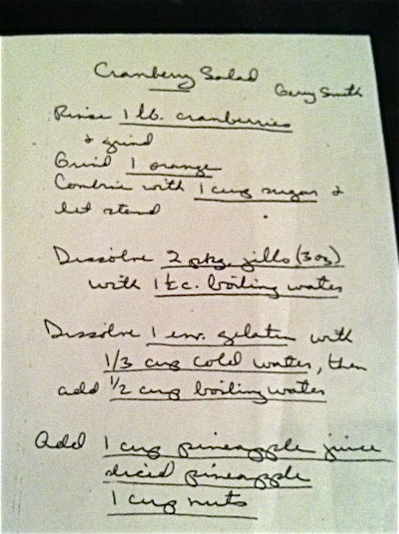 Cranberry Salad
Smith
Rinse 1 lb. cranberries
& grind
Grind 1 orange
Combine with 1 cup sugar &
let stand
Dissolve 2 pkg. jello (3oz)
with 1½c. boiling water
Dissolve 1 env. gelatin with
1/3 cup cold water, then
add 1/2 cup boiling water
Add 1 cup pineapple juice
diced pineapple
1 cup nuts